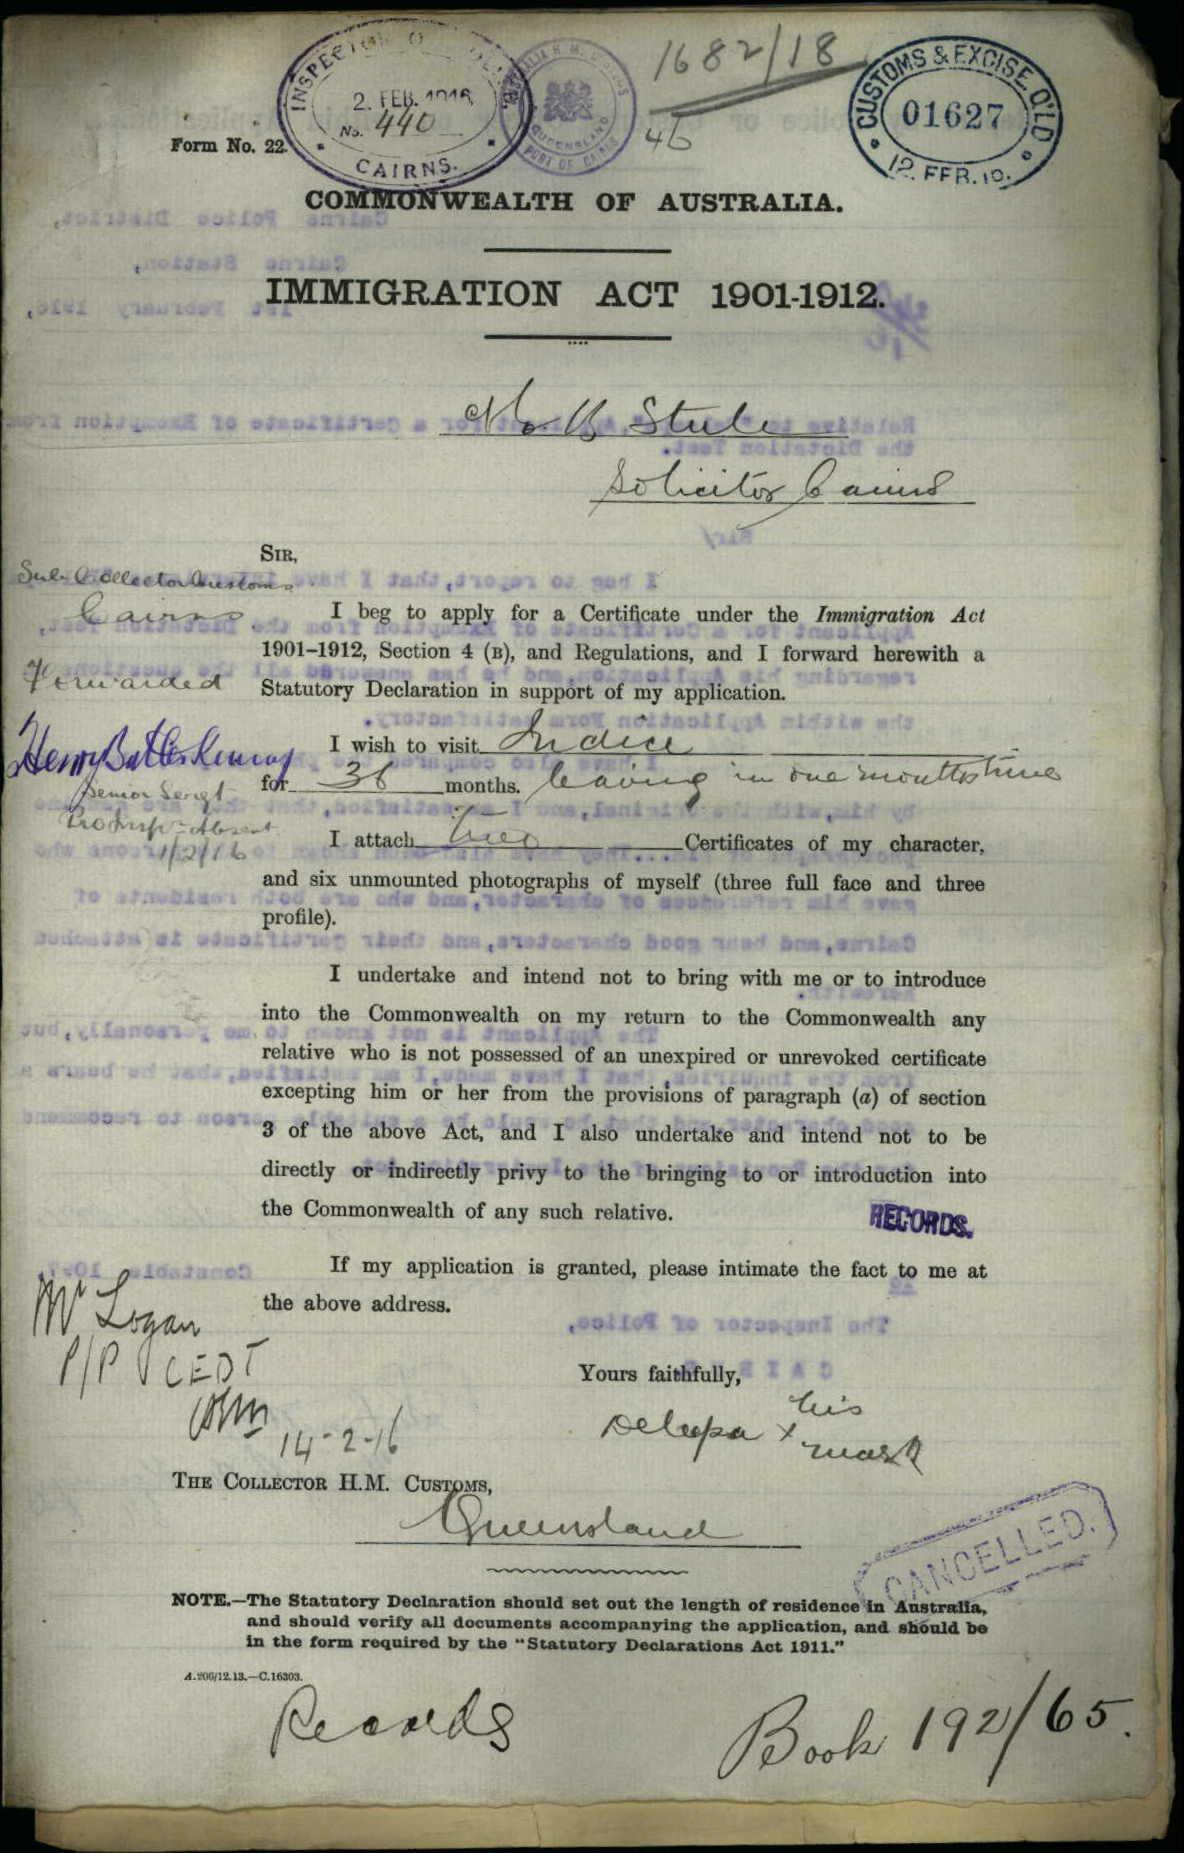 1682/18
INSPECTOR OF POLICE
2. FEB. 1916
No. 440
CAIRNS.
AUSTRALIA H.M. CUSTOMS
QUEENSLAND
PORT OF CAIRNS
46
CUSTOMS & EXCISE, Q'LD
01627
12. FEB.
Form No. 22.
COMMONWEALTH OF AUSTRALIA.
IMMIGRATION ACT 1901-1912.
Solicitor Cairns
SIR,
Sub Collector Customs
Cairns
Forwarded
Senior Sergt
Absent
1/2/16
I beg to apply for a Certificate under the Immigration Act
1901–1912, Section 4 (B), and Regulations, and I forward herewith a
Statutory Declaration in support of my application.
I wish to visit Indice
for 36 months. leaving in one months time
I attach two Certificates of my character,
and six unmounted photographs of myself (three full face and three
profile).
I undertake and intend not to bring with me or to introduce
into the Commonwealth on my return to the Commonwealth any
relative who is not possessed of an unexpired or unrevoked certificate
excepting him or her from the provisions of paragraph (a) of section
3 of the above Act, and I also undertake and intend not to be
directly or indirectly privy to the bringing to or introduction into
the Commonwealth of any such relative.
RECORDS.
If my application is granted, please intimate the fact to me at
the above address.
Mr Logan
P/P CEDT
14-2-16
Yours faithfully,
Deleepa x his
mark
THE COLLECTOR H.M. CUSTOMS,
Queensland
CANCELLED.
NOTE.—The Statutory Declaration should set out the length of residence in Australia,
and should verify all documents accompanying the application, and should be
in the form required by the "Statutory Declarations Act 1911."
A.200/12.13.—C.16303.
Records
Book 192/65.